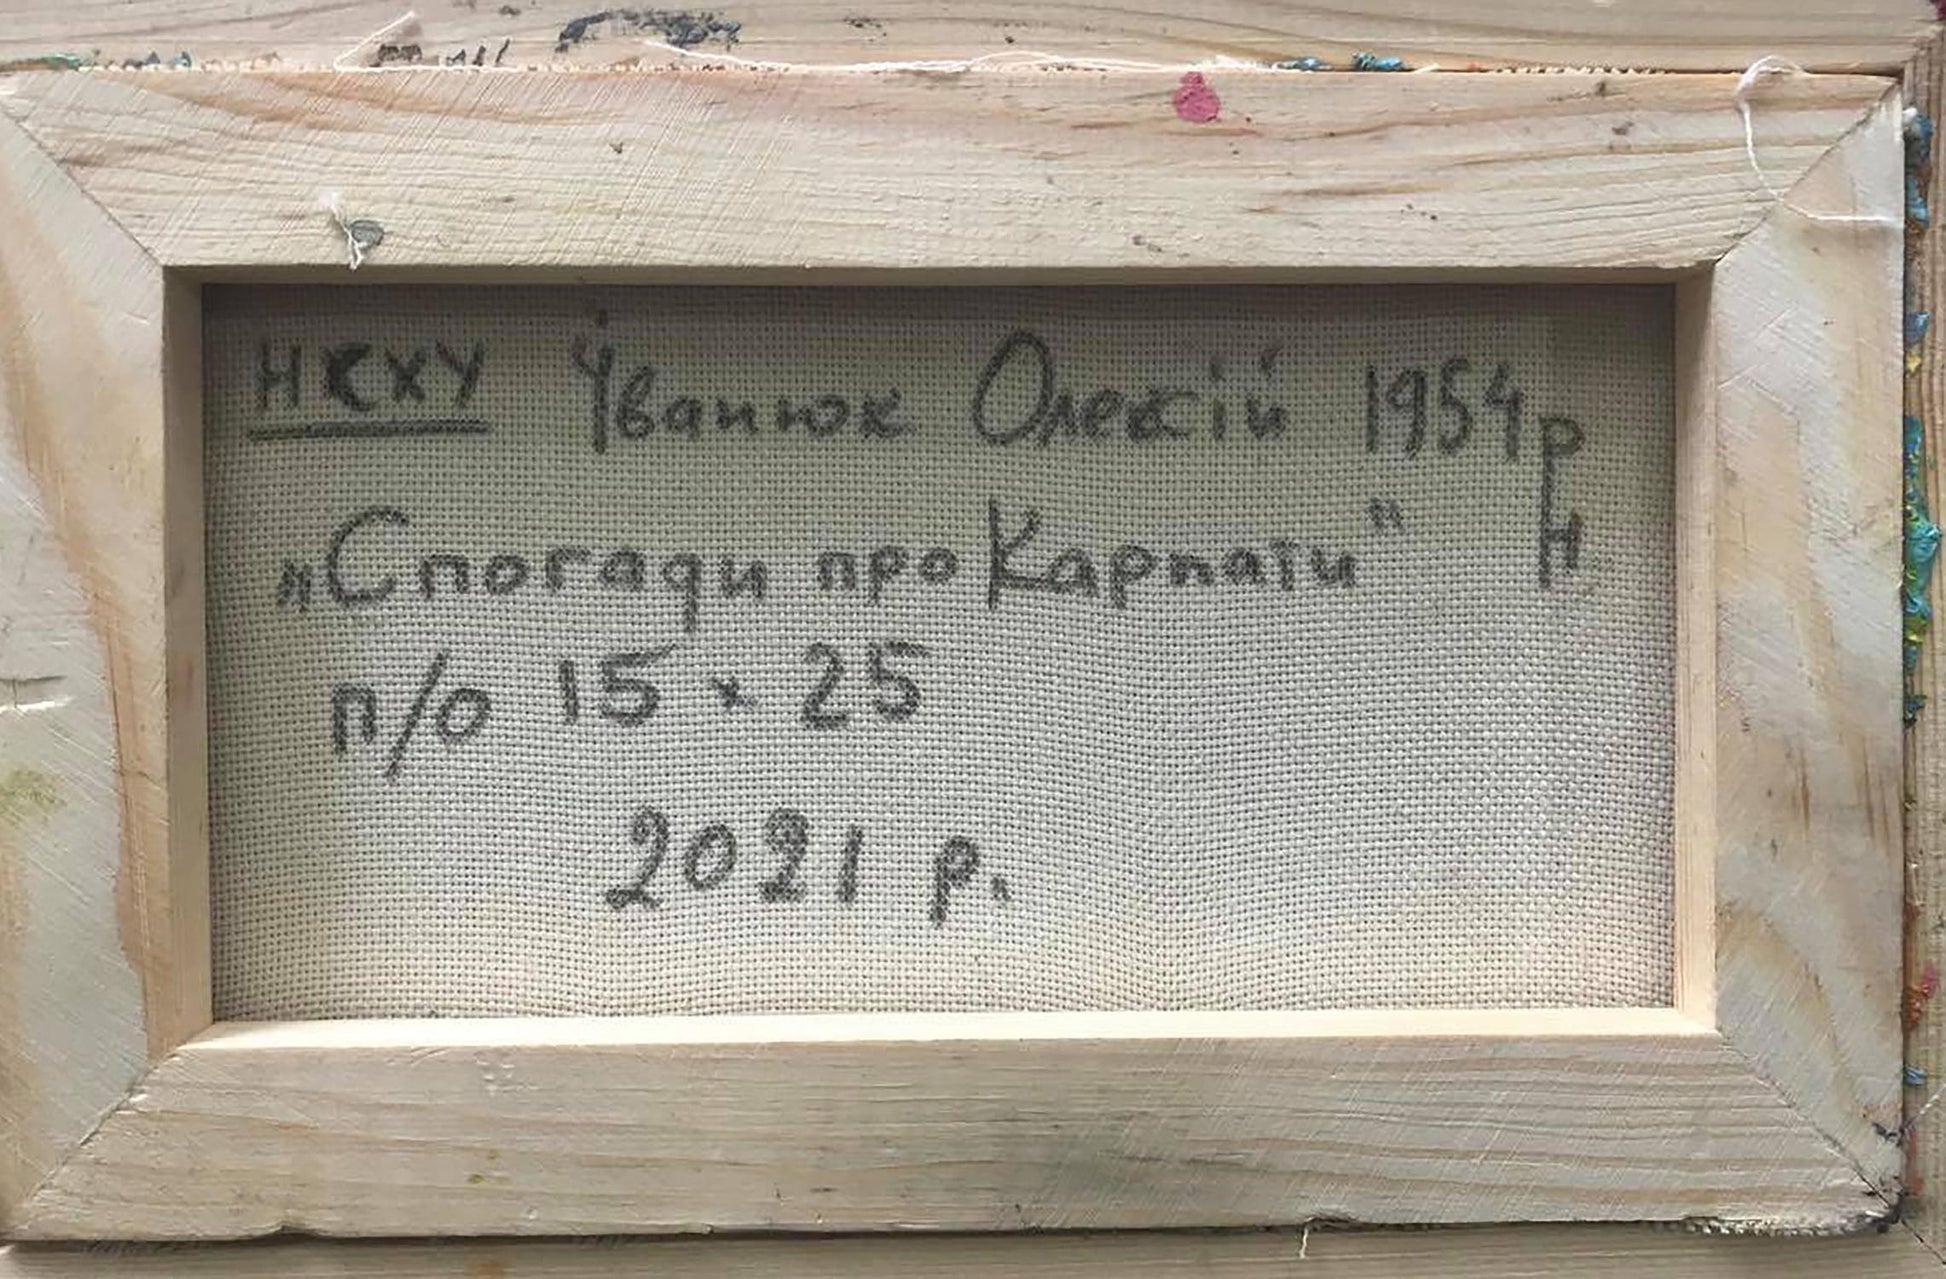 НСХУ Іванюк Олексій 1954 р
н
„Спогади про Карпати"
п/о 15 x 25
2021 р.